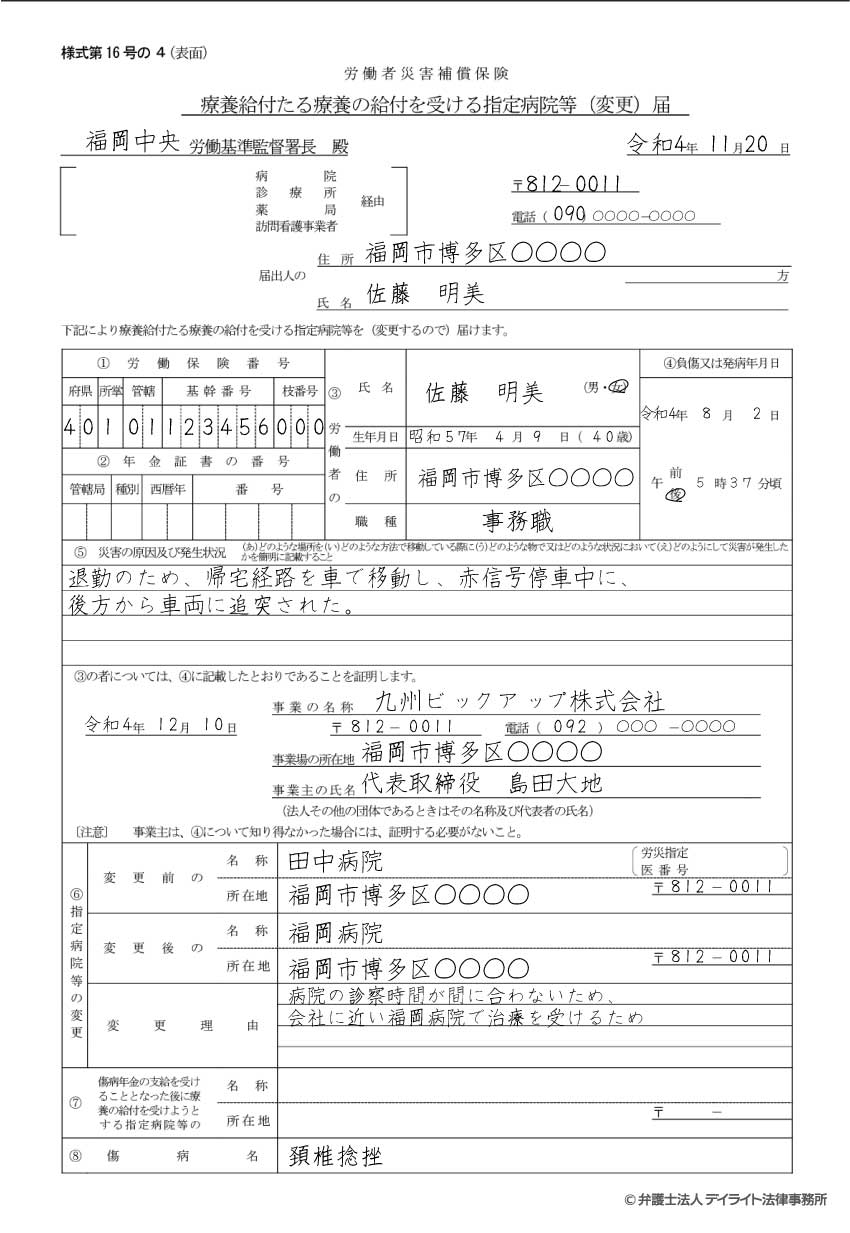 様式第16号の4(表面)
労働者災害補償保険
療養給付たる療養の給付を受ける指定病院等(変更)届
福岡中央 労働基準監督署長 殿
令和4年 11月20日
病院
診療所
薬局
訪問看護事業者
経由
〒812-0011
電話(090)○○○○-○○○○
届出人の
住所 福岡市博多区○○○○
方
氏名 佐藤 明美
下記により療養給付たる療養の給付を受ける指定病院等を(変更するので)届けます。
①労働保険番号
府県 所掌 管轄 基幹番号 枝番号
40 1 01 123456 000
②年金証書の番号
管轄局 種別 西暦年 番号
③労働者の
氏名 佐藤 明美 (男・女)
生年月日 昭和57年 4月9日(40歳)
住所 福岡市博多区○○○○
職種 事務職
④負傷又は発病年月日
令和4年 8月 2日
午 前 後 5時37分頃
⑤ 災害の原因及び発生状況 (あ)どのような場所を(い)どのような方法で移動している際に(う)どのような物で又はどのような状況において(え)どのようにして災害が発生した
かを簡明に記載すること
退勤のため、帰宅経路を車で移動し、赤信号停車中に、
後方から車両に追突された。
③の者については、④に記載したとおりであることを証明します。
事業の名称 九州ビックアップ株式会社
令和4年 12月 10日
〒812-0011 電話(092)○○○-○○○○
事業場の所在地 福岡市博多区○○○○
事業主の氏名 代表取締役 島田大地
(法人その他の団体であるときはその名称及び代表者の氏名)
[注意] 事業主は、④について知り得なかった場合には、証明する必要がないこと。
⑥指定病院等の変更
変更前の
名称 田中病院
労災指定
医番号
所在地 福岡市博多区○○○○
〒812-0011
変更後の
名称 福岡病院
所在地 福岡市博多区○○○○
〒812-0011
変更理由
病院の診察時間が間に合わないため、
会社に近い福岡病院で治療を受けるため
⑦
傷病年金の支給を受け
ることとなった後に療
養の給付を受けようと
する指定病院等の
名称
所在地
〒 -
⑧ 傷病名 頚椎捻挫
©弁護士法人 デイライト法律事務所